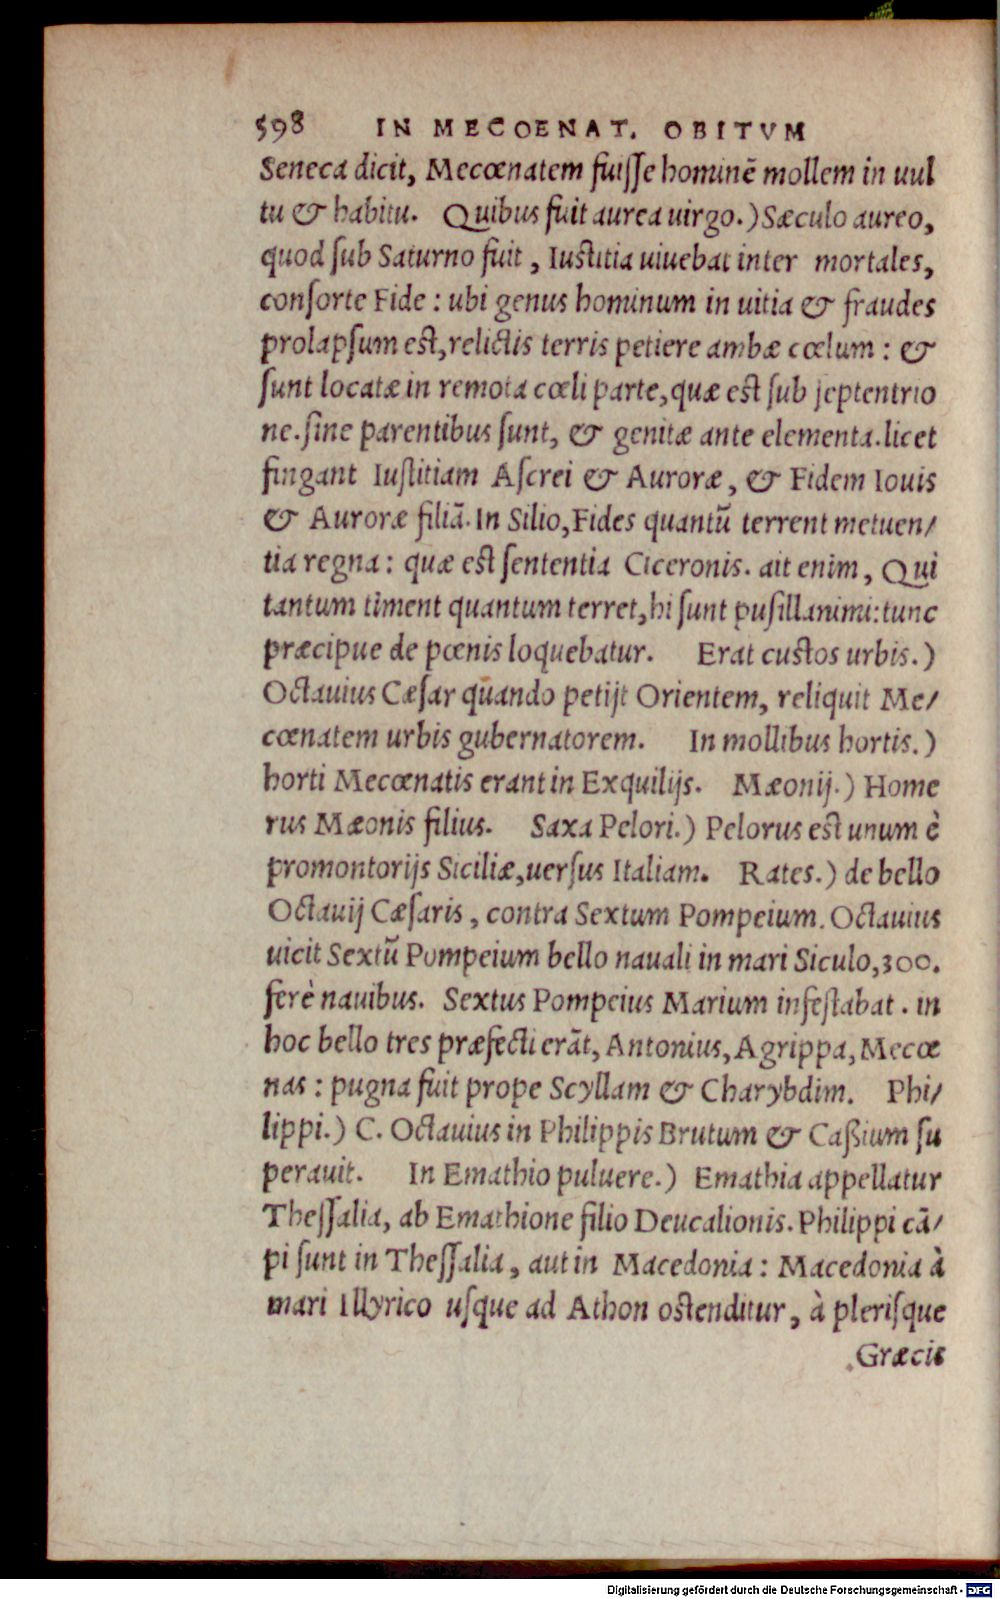 598 IN MECOENAT. OBITVM
Seneca dicit, Mecœnatem fuisse hominẽ mollem in uul
tu & habitu. Quibus fuit aurea uirgo.) Sæculo aureo,
quod sub Saturno fuit, Iustitia uiuebat inter mortales,
consorte Fide: ubi genus hominum in uitia & fraudes
prolapsum est, relictis terris petiere ambæ cœlum: &
sunt locatæ in remota cœli parte, quæ est sub septentrio
ne. sine parentibus sunt, & genitæ ante elementa. licet
fingant Iustitiam Ascrei & Auroræ, & Fidem Iouis
& Auroræ filiã. In Silio, Fides quantũ terrent metuen/
tia regna: quæ est sententia Ciceronis. ait enim, Qui
tantum timent quantum terret, hi sunt pusillanimi: tunc
præcipue de pœnis loquebatur. Erat custos urbis.)
Octauius Cæsar quando petijt Orientem, reliquit Me/
cœnatem urbis gubernatorem. In mollibus hortis.)
horti Mecœnatis erant in Exquilijs. Mæonij.) Home
rus Mæonis filius. Saxa Pelori.) Pelorus est unum è
promontorijs Siciliæ, uersus Italiam. Rates.) de bello
Octauij Cæsaris, contra Sextum Pompeium. Octauius
uicit Sextũ Pompeium bello nauali in mari Siculo, 300.
ferè nauibus. Sextus Pompeius Marium infestabat. in
hoc bello tres præfecti erãt, Antonius, Agrippa, Mecœ
nas: pugna fuit prope Scyllam & Charybdim. Phi/
lippi.) C. Octauius in Philippis Brutum & Caßium su
perauit. In Emathio puluere.) Emathia appellatur
Thessalia, ab Emathione filio Deucalionis. Philippi cã/
pi sunt in Thessalia, aut in Macedonia: Macedonia à
mari Illyrico usque ad Athon ostenditur, à plerisque
Græcis
Digitalisierung gefördert durch die Deutsche Forschungsgemeinschaft - DFG